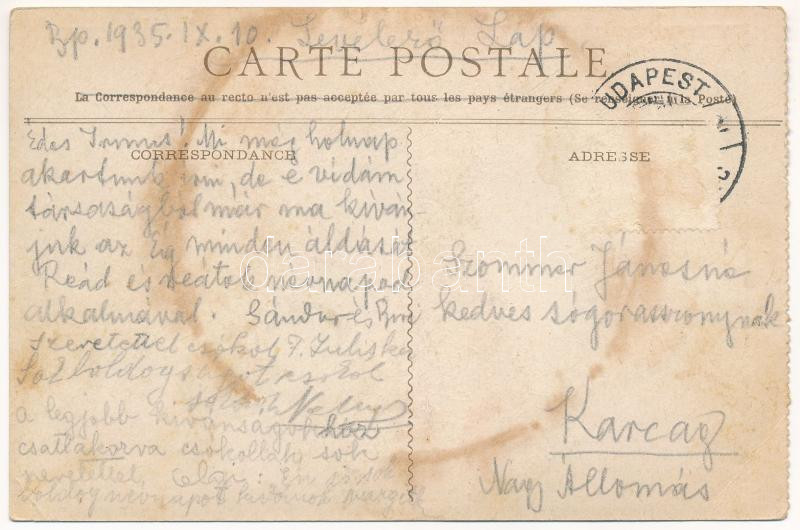 Bp. 1935. IX. 10. Levelező Lap
CARTE POSTALE
La Correspondance au recto n'est pas acceptée par tous les pays étrangers (Se renseigner à la Poste)
UDAPEST
CORRESPONDANCE
ADRESSE
Edes Irmus! Mi még holnap
akartunk irni, de e vidám
társaságból már ma kiván-
juk az Ég minden áldását
Reád és reátok nevnapod
alkalmával. Sándor és
szeretettel csókol F. Juliska
Sok boldogságot csókol
a legjobb kivánságokhoz
csatlakozva csókollak sok
szeretettel
boldog nevnapot
Szommer Jánosné
kedves sógorasszonynak
Karcag
Nagy Állomás
darabanth